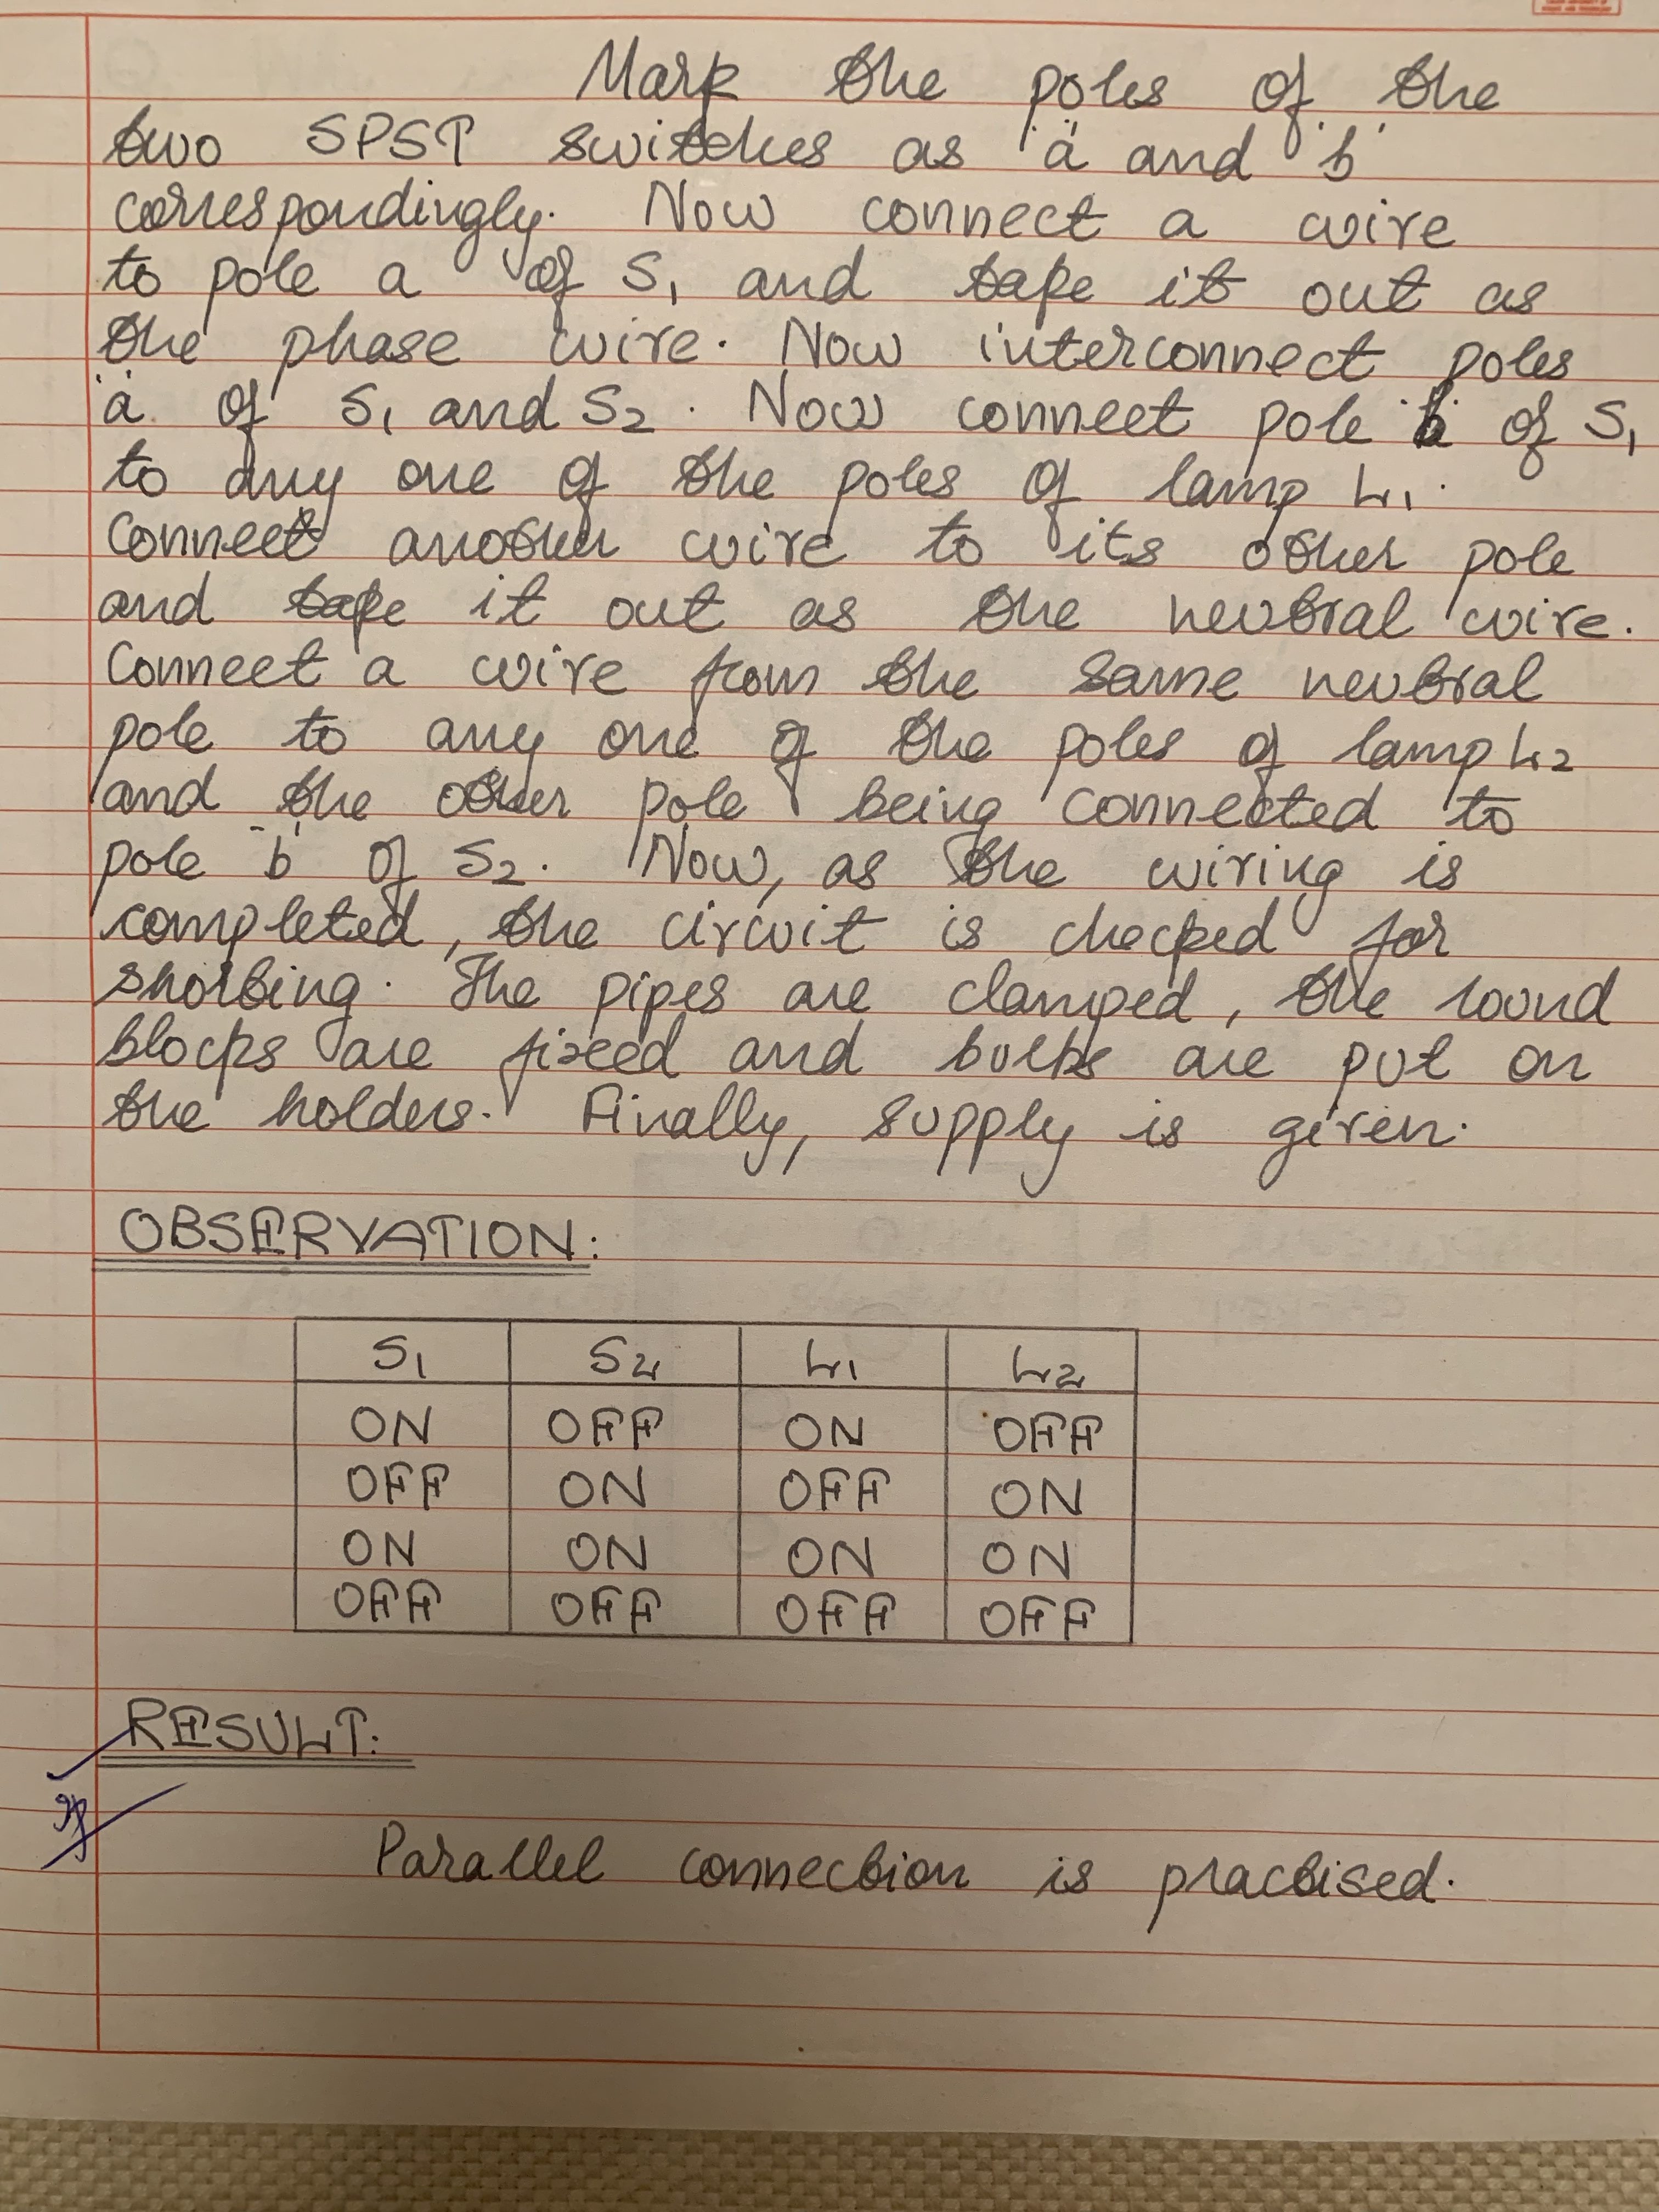 Mark the poles of the
two SPST switches as 'a' and 'b'
correspondingly. Now connect a wire
to pole a of S1 and take it out as
the phase wire. Now interconnect poles
'a' of S1 and S2. Now connect pole 'b' of S1
to any one of the poles of lamp L1.
Connect another wire to its other pole
and take it out as the neutral wire.
Connect a wire from the same neutral
pole to any one of the poles of lamp L2
and the other pole being connected to
pole 'b' of S2. Now, as the wiring is
completed, the circuit is checked for
shorting. The pipes are clamped, the round
blocks are fixed and bulbs are put on
the holders. Finally, supply is given.
OBSERVATION:
S1 S2 L1 L2
ON OFF ON OFF
OFF ON OFF ON
ON ON ON ON
OFF OFF OFF OFF
RESULT:
Parallel connection is practised.